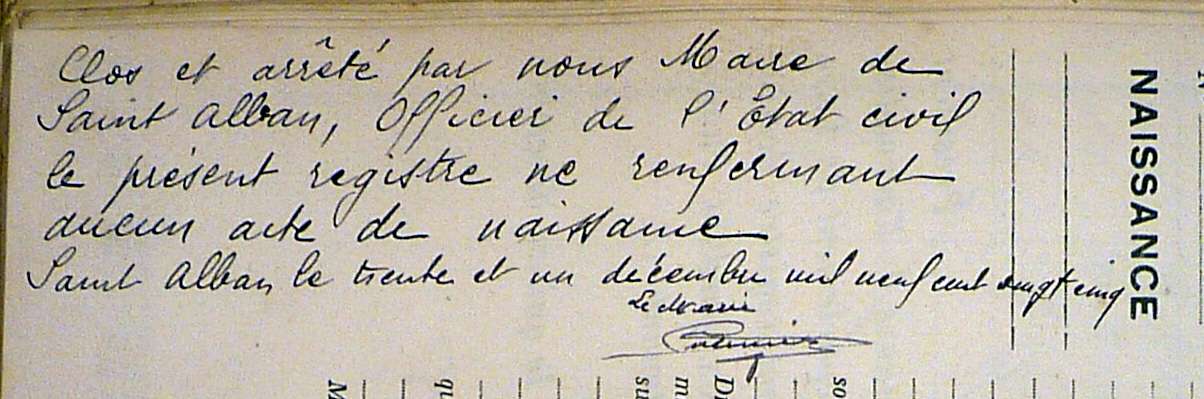 Clos et arrêté par nous Maire de
Saint Alban, Officier de l'Etat civil
le présent registre ne renfermant
aucun acte de naissance
Saint Alban le trente et un décembre mil neuf cent vingt cinq
Le Maire
NAISSANCE